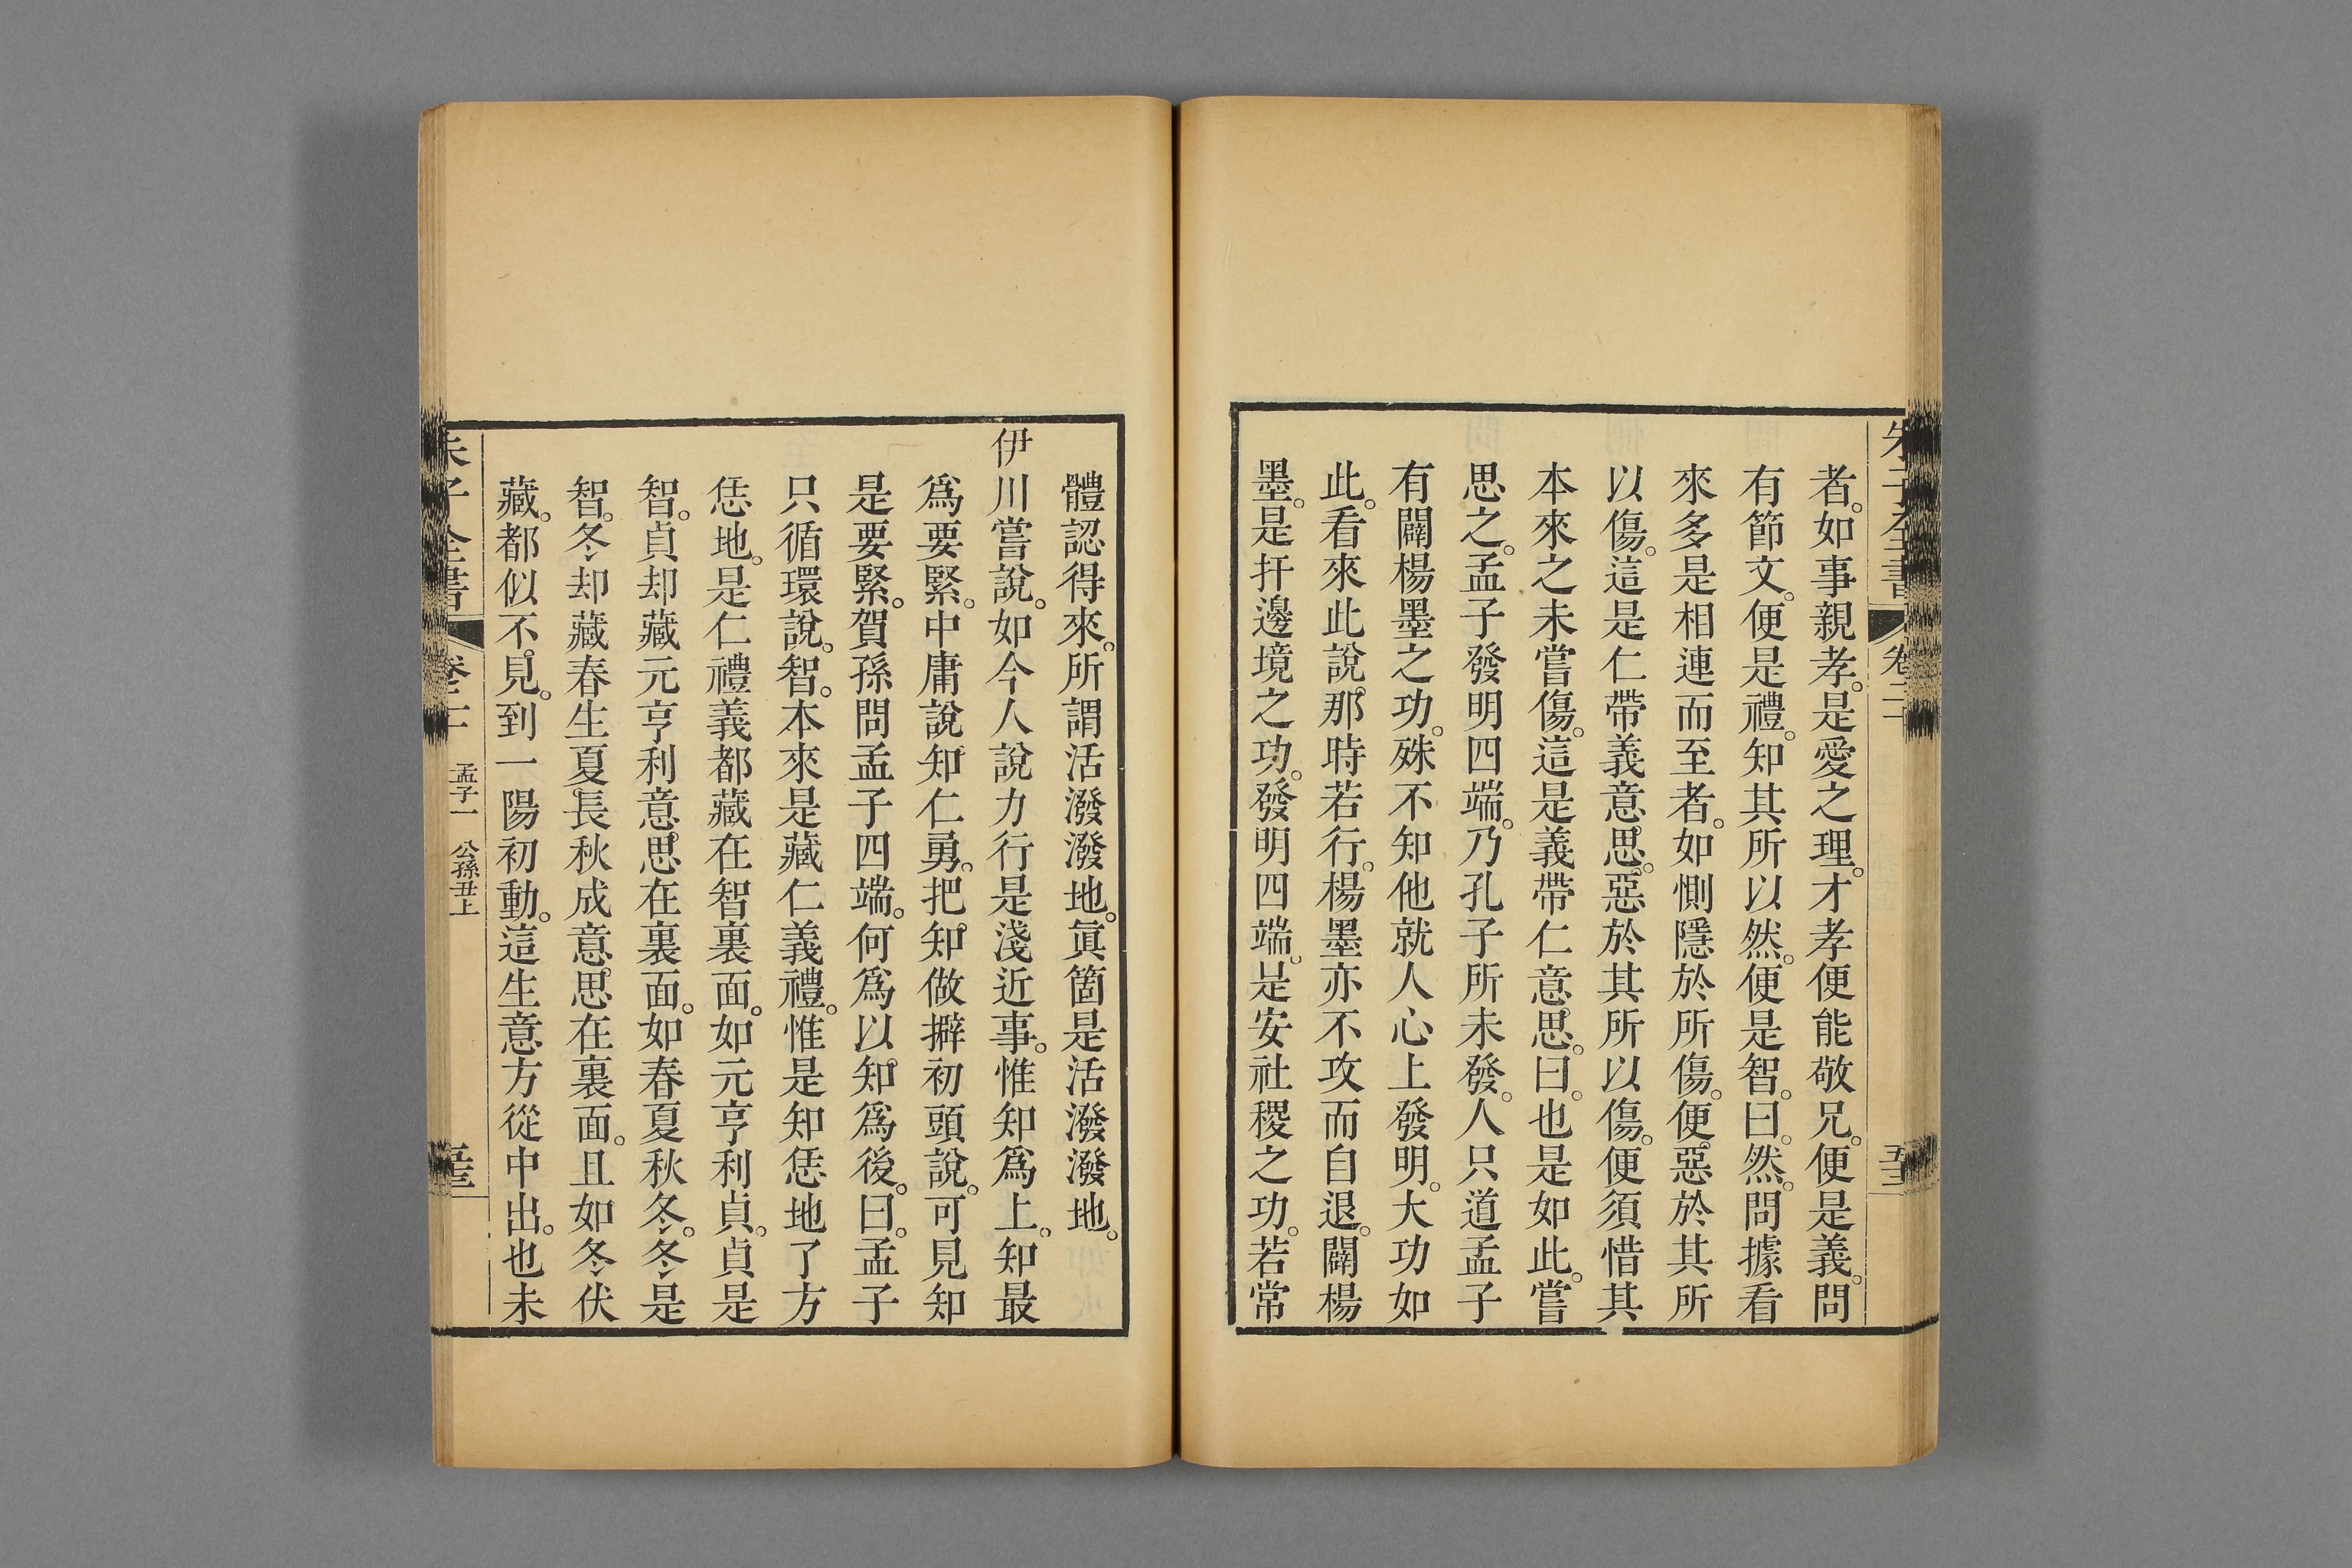 朱子全書 卷二十
者。如事親孝。是愛之理。才孝便能敬兄。便是義。問
有節文。便是禮。知其所以然。便是智。曰。然。問據看
來多是相連而至者。如惻隱於所傷。便惡於其所
以傷。這是仁帶義意思。惡於其所以傷。便須惜其
本來之未嘗傷。這是義帶仁意思。曰。也是如此。嘗
思之。孟子發明四端。乃孔子所未發。人只道孟子
有闢楊墨之功。殊不知他就人心上發明。大功如
此。看來此說。那時若行。楊墨亦不攻而自退。闢楊
墨。是扞邊境之功。發明四端。是安社稷之功。若常
體認得來。所謂活潑潑地。眞箇是活潑潑地。
伊川嘗說。如今人說力行是淺近事。惟知爲上。知最
爲要緊。中庸說知仁勇。把知做擗初頭說。可見知
是要緊。賀孫問孟子四端。何爲以知爲後。曰。孟子
只循環說。智。本來是藏仁義禮。惟是知恁地了方
恁地。是仁禮義都藏在智裏面。如元亨利貞。貞是
智。貞却藏元亨利意思在裏面。如春夏秋冬。冬是
智。冬却藏春生夏長秋成意思在裏面。且如冬伏
藏。都似不見。到一陽初動。這生意方從中出。也未
朱子全書 卷二十 孟子一 公孫丑上